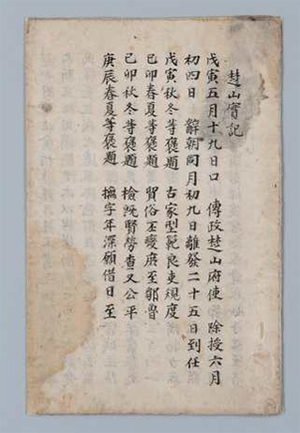 楚山實記
戊寅五月十九日口 傳政楚山府使 除授六月
初四日 辭朝同月初九日離發二十五日到任
戊寅秋冬等褒題 古家型範良吏規度
己卯春夏等褒題 質俗丕變庶至鄒魯
己卯秋冬等褒題 檢旣賢勞查又公平
庚辰春夏等褒題 撫字年深願借日至